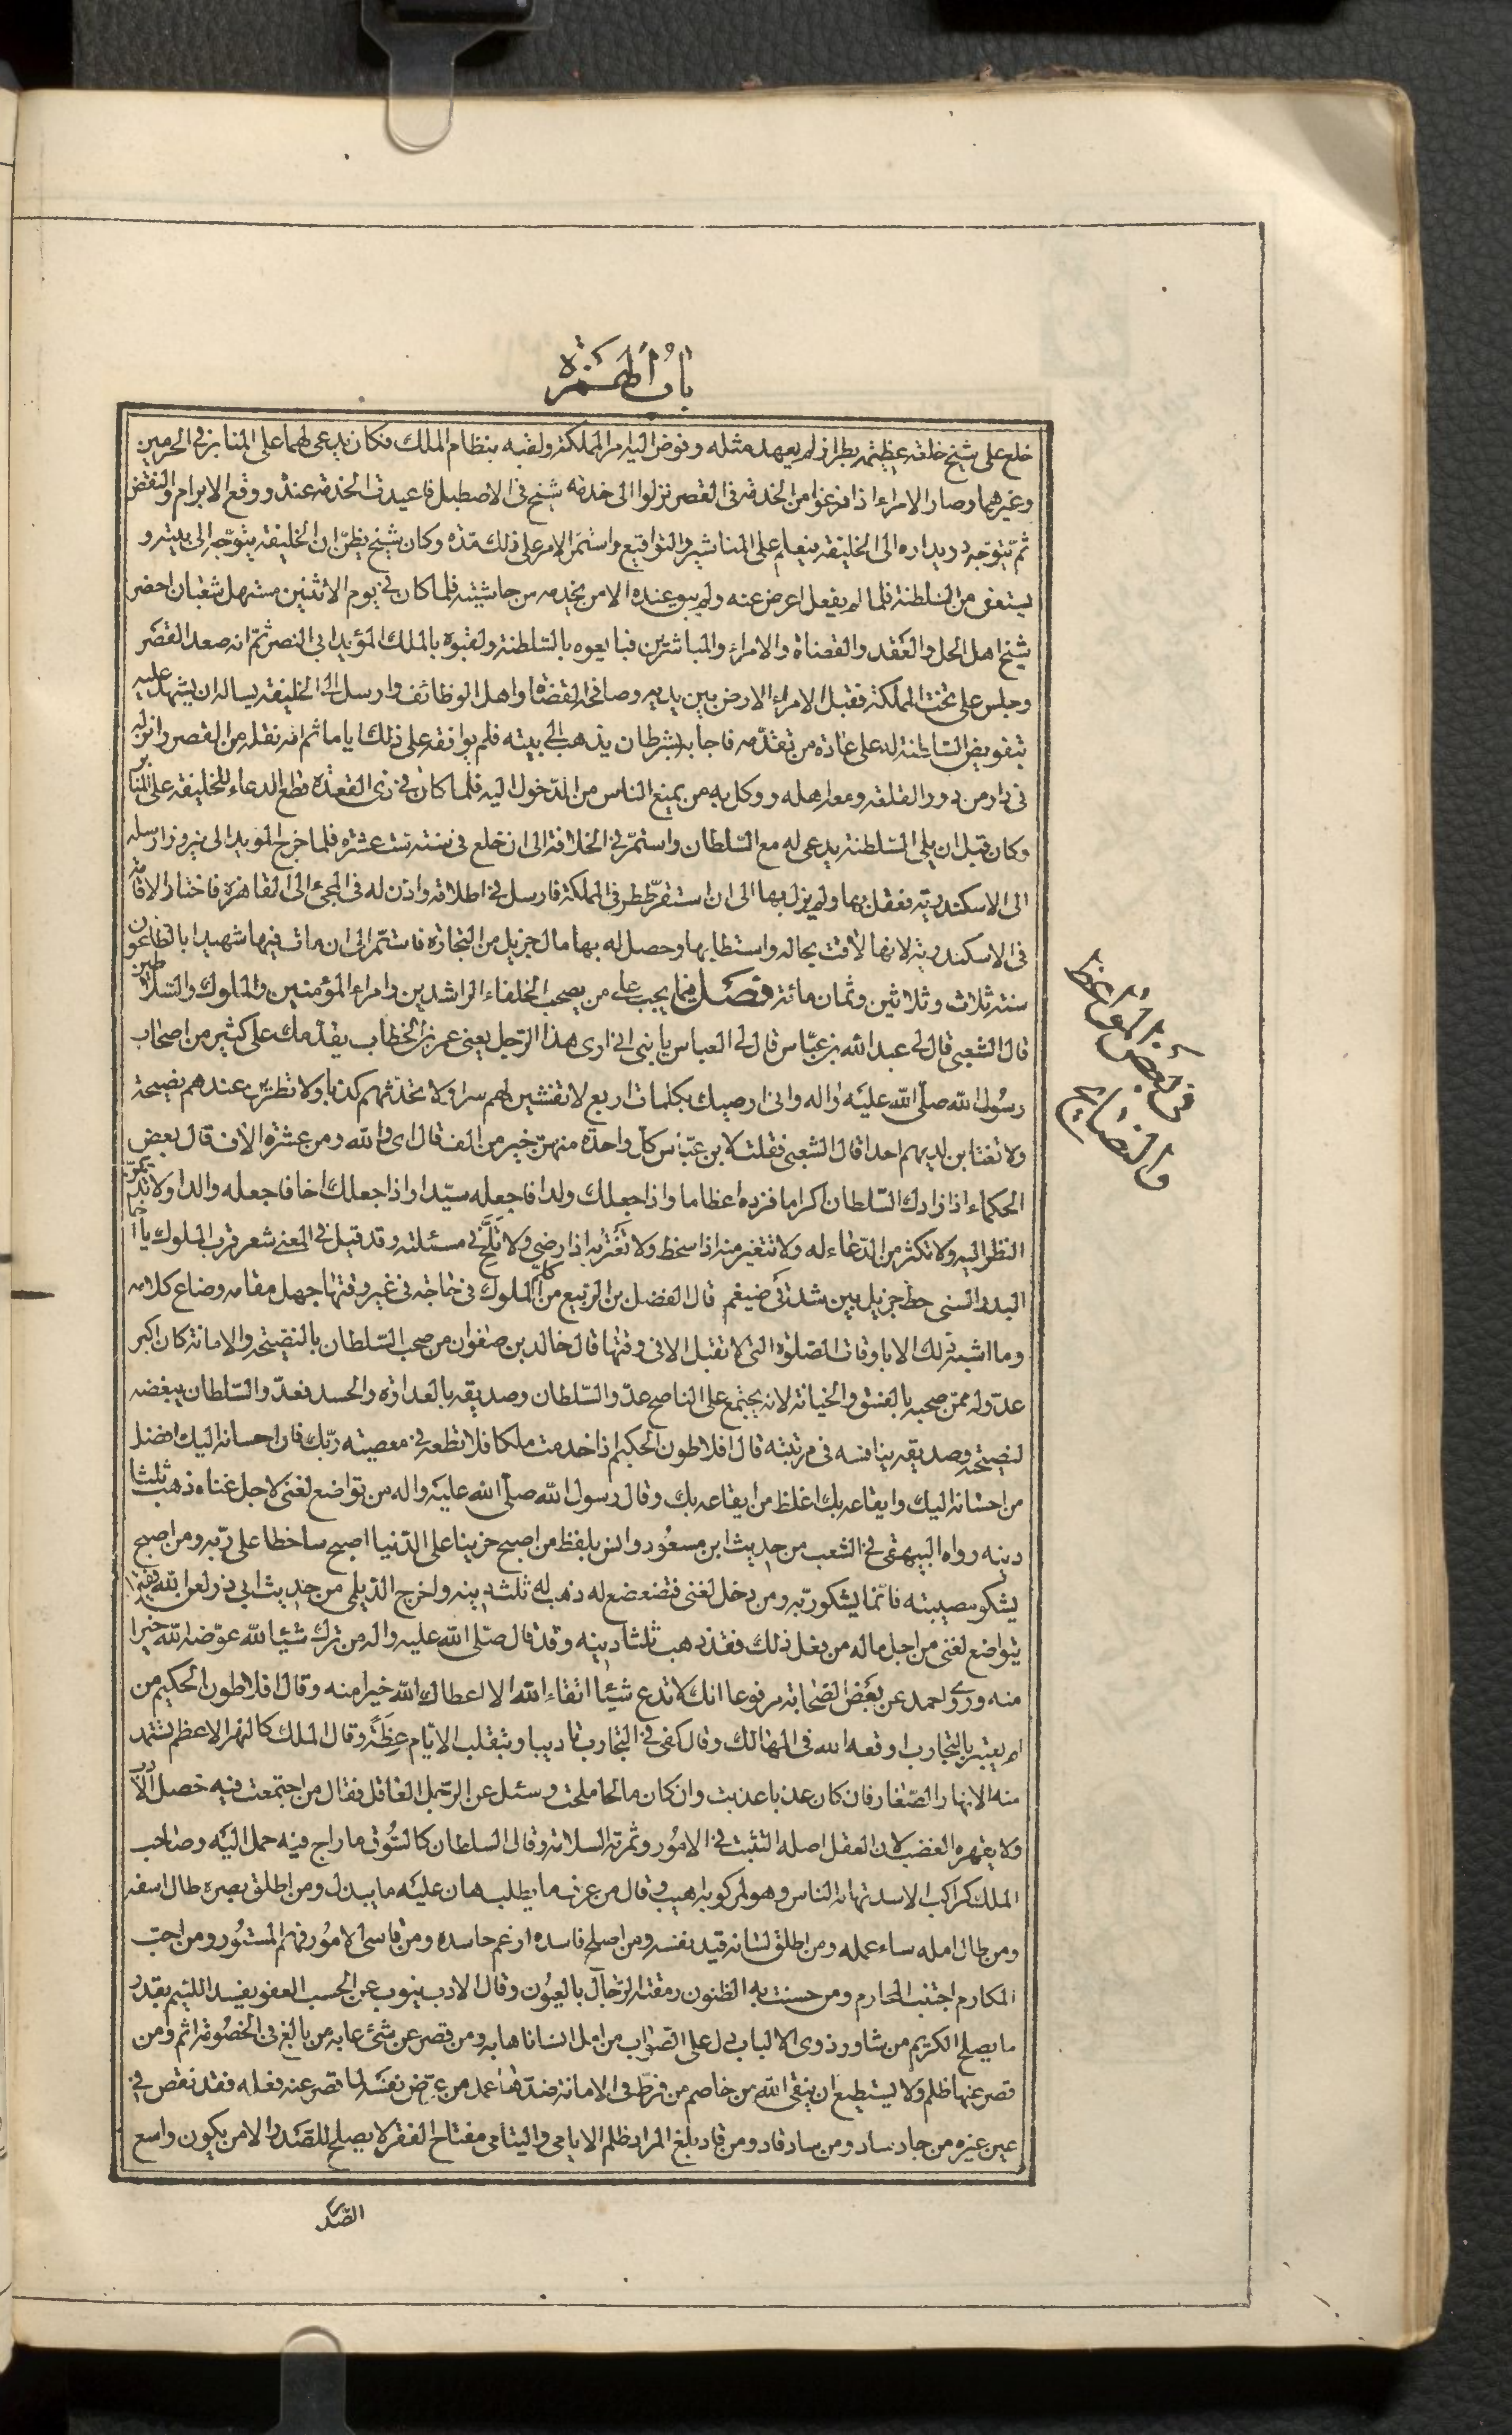 باب الهمزة
خلع على شيخ خلعة عظيمة بطراز لم يعهد مثله وفوض اليه امر المملكة ولقبه بنظام الملك فكان يدعى لهما على المنابر في الحرمين
وغيرهما وصار الامراء اذا فرغوا من الخدمة في القصر نزلوا الى خدمة شيخ في الاصطبل فاعيدت الخدمة عنده ووقع الابرام والنقض
ثم يتوجه دويداره الى الخليفة فيعلم على المناشير والتواقيع واستمر الامر على ذلك مدة وكان شيخ يظن ان الخليفة يتوجه الى بيته و
يستعفى من السلطنة فلما لم يفعل اعرض عنه ولم يبق عنده الا من يخدمه من حاشيته فلما كان في يوم الاثنين مستهل شعبان احضر
شيخ اهل الحل والعقد والقضاة والامراء والمباشرين فبايعوه بالسلطنة ولقبوه بالملك المؤيد ابى النصر ثم انه صعد القصر
وجلس على تخت المملكة فقبل الامراء الارض بين يديه وصافحه القضاة واهل الوظائف وارسل الى الخليفة يساله ان يشهد عليه
بتفويض السلطنة له على عادة من تقدمه فاجابه بشرط ان يذهب الى بيته فلم يوافقه على ذلك اياما ثم انه نقله من القصر وانزله
في دار من دور القلعة ومعه اهله ووكل به من يمنع الناس من الدخول اليه فلما كان في ذى القعدة قطع الدعاء للخليفة على المنابر
وكان قبل ان يلى السلطنة يدعى له مع السلطان واستمر في الخلافة الى ان خلع في سنة ست عشرة فلما خرج المويد الى نيروز ارسله
الى الاسكندرية فعقل بها ولم يزل بها الى ان استقر ططر في المملكة فارسل في اطلاقه واذن له في المجئ الى القاهرة فاختار الاقامة
في الاسكندرية لانها لاقت بحاله واستطابها وحصل له بها مال جزيل من التجارة فاستمر الى ان مات فيها شهيدا بالطاعون
سنة ثلاث وثلاثين وثمان مائة فصل فيما يجب على من يصحب الخلفاء الراشدين وامراء المؤمنين والملوك والسلاطين
قال الشعبى قال لى عبد الله بن عباس قال لى العباس يا بنى انى ارى هذا الرجل يعنى عمر بن الخطاب يقدمك على كثير من اصحاب
رسول الله صلى الله عليه واله وانى اوصيك بكلمات اربع لا تفشين لهم سرا ولا تحدثهم كذبا ولا تطوين عندهم نصيحة
ولا تغتابن لديهم احدا قال الشعبى فقلت لابن عباس كل واحدة منهن خير من الف قال اى والله ومن عشرة الاف قال بعض
الحكماء اذا زادك السلطان اكراما فزده اعظاما واذا جعلك ولدا فاجعله سيدا واذا جعلك اخا فاجعله والدا ولا تديمن
النظر اليه ولا تكثر من الدعاء له ولا تتغير منه اذا سخط ولا تغتر به اذا رضى ولا تلح في مسئلته وقد قيل في المعنى شعر قرب الملوك يا اخا
البدر السنى حظ جزيل بين شدقى ضيغم قال الفضل بن الربيع من كلم الملوك في حاجة في غير وقتها جهل مقامه وضاع كلامه
وما اشبه ذلك الا باوقات الصلوة التى لا تقبل الا في وقتها قال خالد بن صفوان من صحب السلطان بالنصيحة والامانة كان اكبر
عدو له ممن صحبه بالفسق والخيانة لانه يجتمع على الناصح عدو السلطان وصديقه بالعداوة والحسد فعدو السلطان يبغضه
لنصيحته وصديقه ينافسه في مرتبته قال افلاطون الحكيم اذا خدمت ملكا فلا تطعه في معصية ربك فان احسانه اليك افضل
من احسانه اليك وايقاعه بك اغلظ من ايقاعه بك وقال رسول الله صلى الله عليه واله من تواضع لغنى لاجل غناه ذهب ثلثا
دينه رواه البيهقى في الشعب من حديث ابن مسعود وانس بلفظ من اصبح حزينا على الدنيا اصبح ساخطا على ربه ومن اصبح
يشكو مصيبته فانما يشكو ربه ومن دخل لغنى فتضعضع له ذهب له ثلث دينه واخرج الديلمى من حديث ابى ذر لعن الله فقيرا
يتواضع لغنى من اجل ماله من فعل ذلك فقد ذهب ثلثا دينه وقد قال صلى الله عليه واله من ترك شيئا لله عوضه الله خيرا
منه وروى احمد عن بعض الصحابة مرفوعا انك لا تدع شيئا اتقاء الله الا اعطاك الله خيرا منه وقال افلاطون الحكيم من
لم يعتبر بالتجارب اوقعه الله في المهالك وقال كفى في التجارب تاديبا وبتقلب الايام عظة وقال الملك كالنهر الاعظم تستمد
منه الانهار الصغار فان كان عذبا عذبت وان كان مالحا ملحت وسئل عن الرجل العاقل فقال من اجتمعت فيه خصل الادب
ولا يقهره الغضب لان العقل اصله التثبت في الامور وثمرته السلامة وقال السلطان كالسوق ما راج فيه حمل اليه وصاحب
الملك كراكب الاسد تهابه الناس وهو لمركوبه اهيب وقال من عرف ما يطلب هان عليه ما يبذل ومن اطلق بصره طال اسفه
ومن طال امله ساء عمله ومن اطلق لسانه قيد نفسه ومن اصلح فاسده ارغم حاسده ومن قاسى الامور فهم المستور ومن احب
المكارم اجتنب المحارم ومن حسنت به الظنون رمقته الرجال بالعيون وقال الادب ينوب عن الحسب العفو يفسد اللئيم بقدر
ما يصلح الكريم من شاور ذوى الالباب دل على الصواب من امل انسانا هابه ومن قصر عن شئ عابه من بالغ في الخصومة اثم ومن
قصر عنها ظلم ولا يستطيع ان يتقى الله من خاصم من فرط في الامانة ضدها عمد من عوض نفسه لما قصر عنه فعله فقد نقص في
عين غيره من جاد ساد ومن ساد قاد ومن قاد بلغ المراد ظلم الايامى واليتامى مفتاح الفقر لا يصلح للصدر الا من يكون واسع
الصدر
في بعض المواعظ
والنصايح